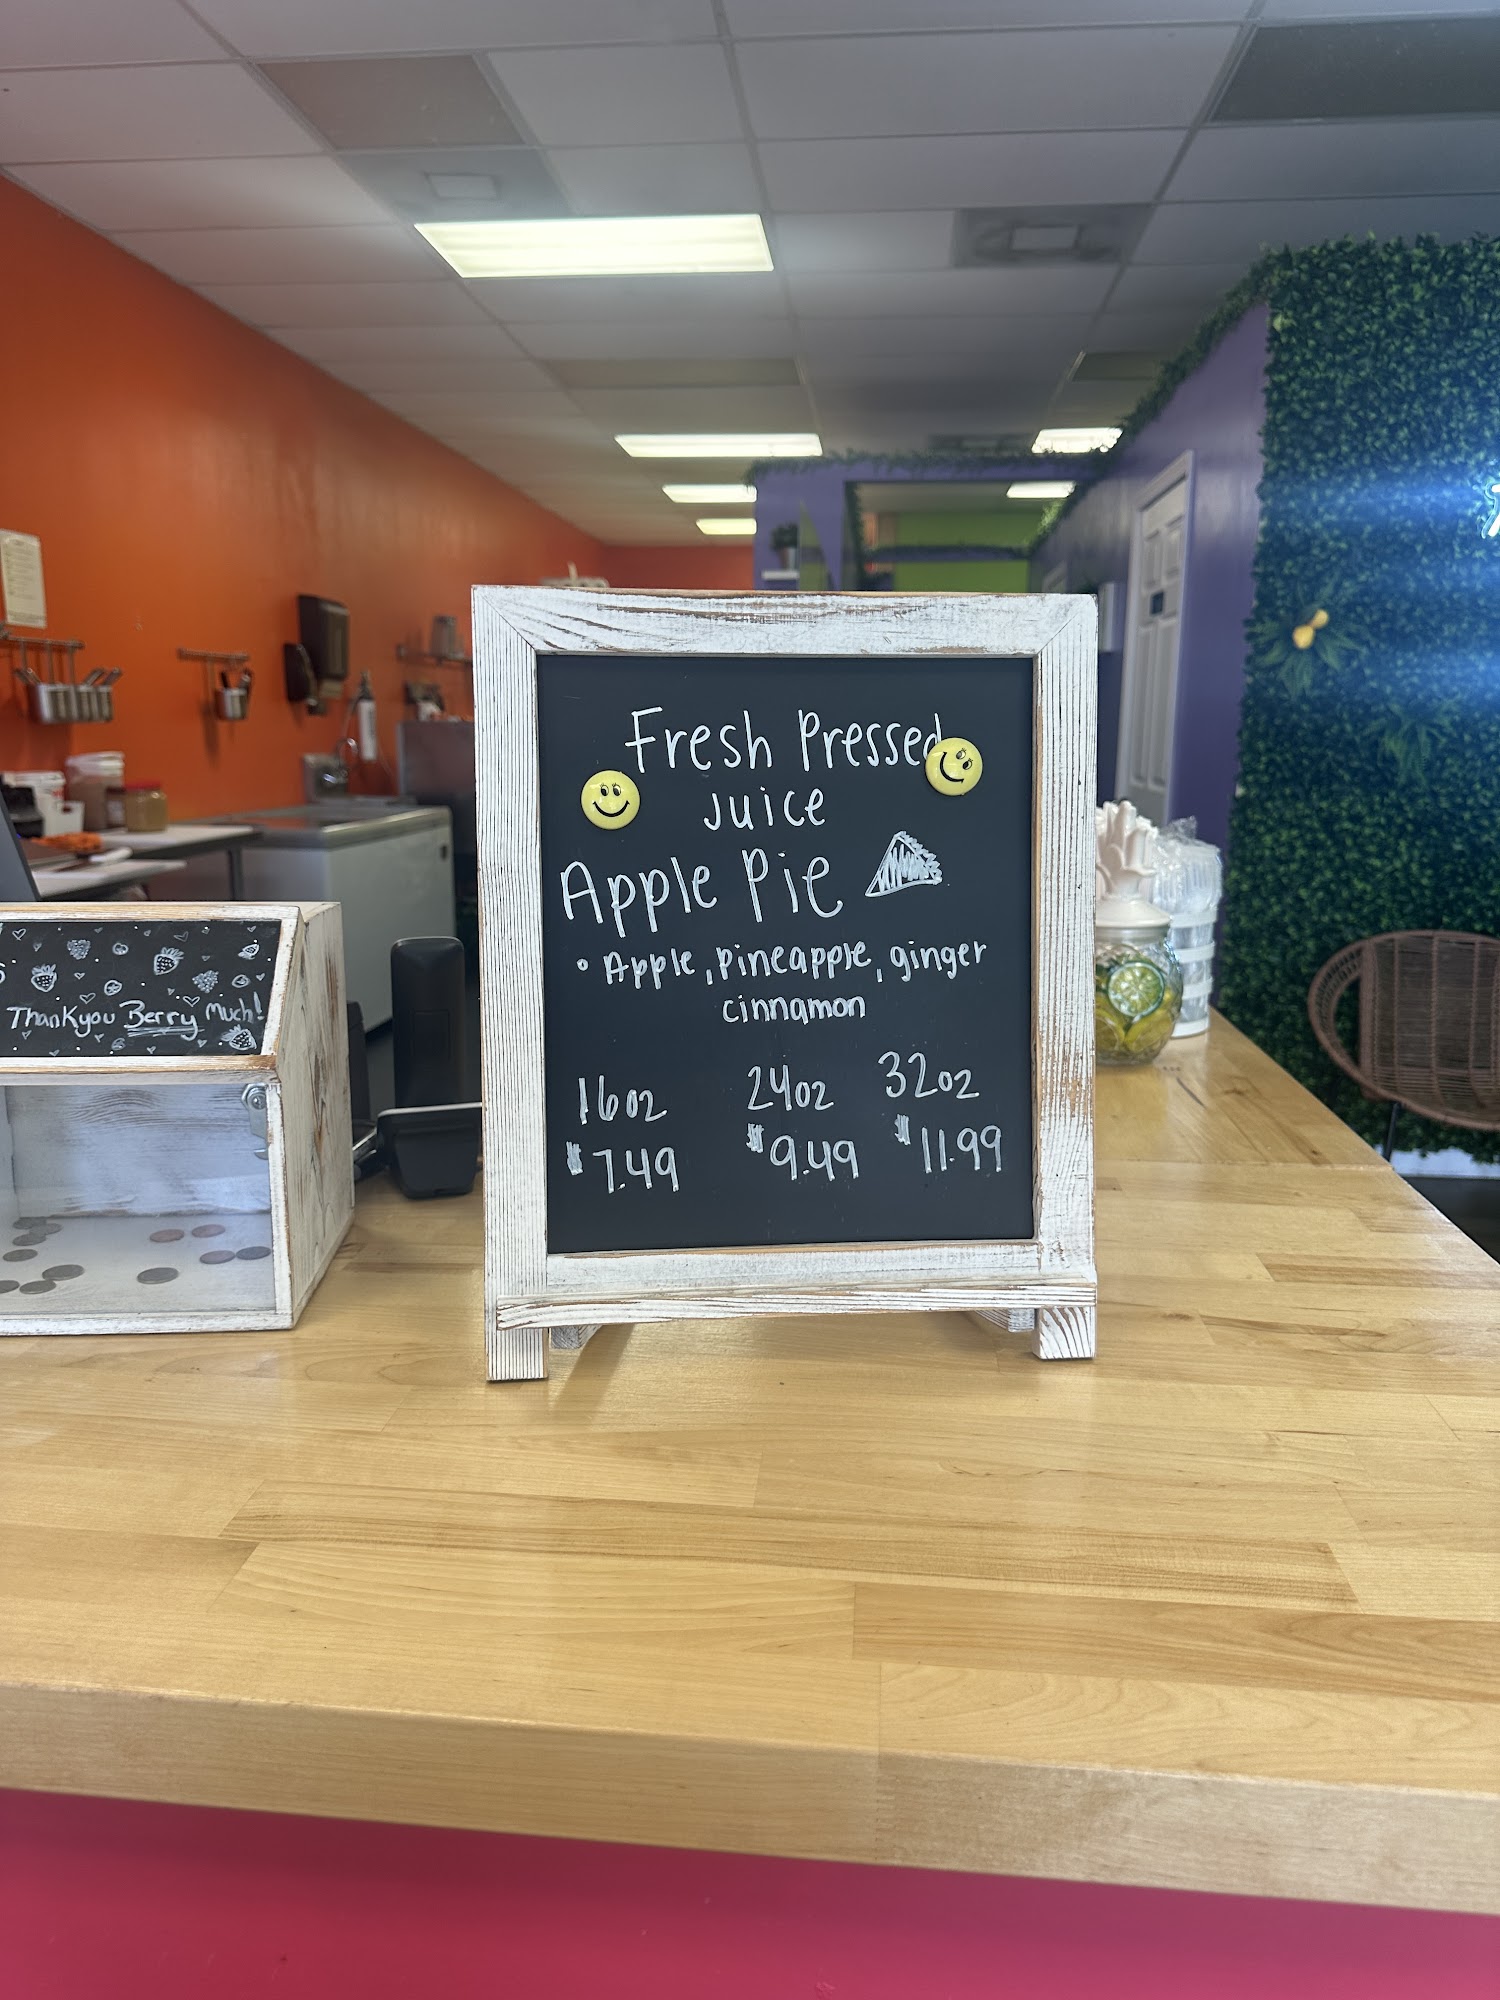 Fresh Pressed
Juice
Apple Pie
• Apple, pineapple, ginger
cinnamon
16oz 24oz 32oz
$7.49 $9.49 $11.99
Thankyou Berry Much!